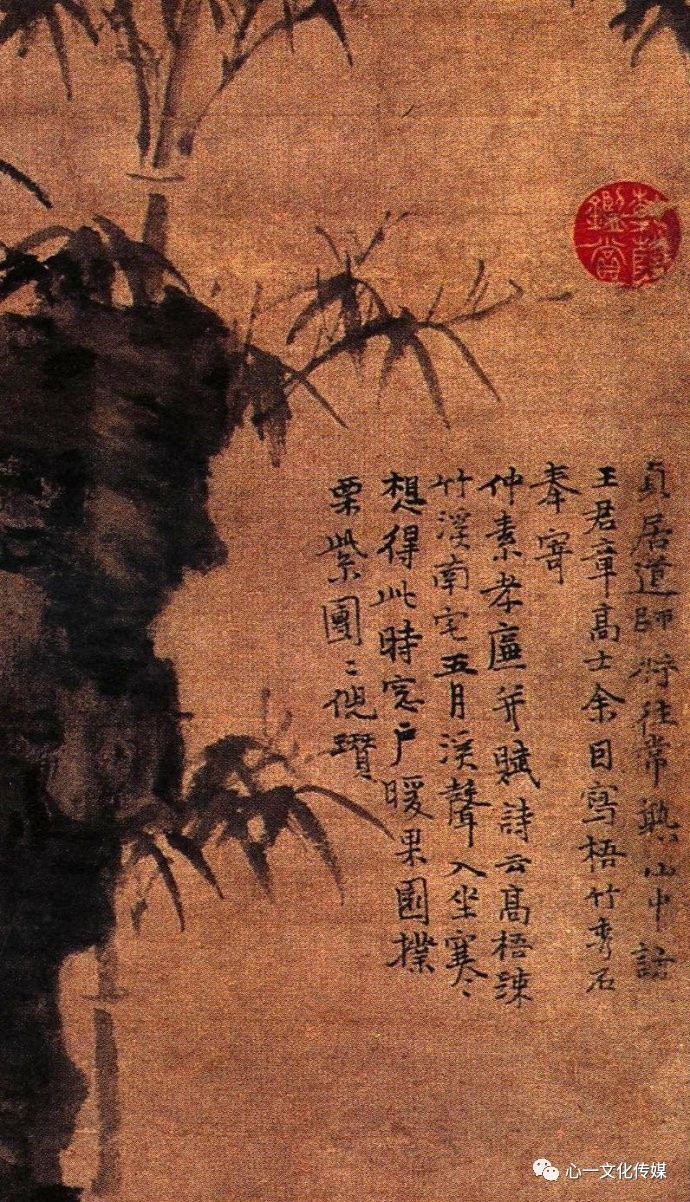 嘉慶鑑賞
貞居道師將往常熟山中訪
王君章高士余因寫梧竹秀石
奉寄
仲素孝廉并賦詩云高梧疎
竹溪南宅五月溪聲入坐寒
想得此時窓戶暖果園撲
栗紫團〻倪瓚
心一文化传媒